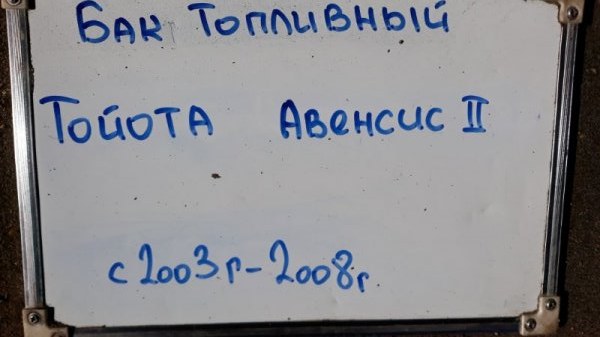 Бак топливный
Тойота Авенсис II
с 2003г-2008г